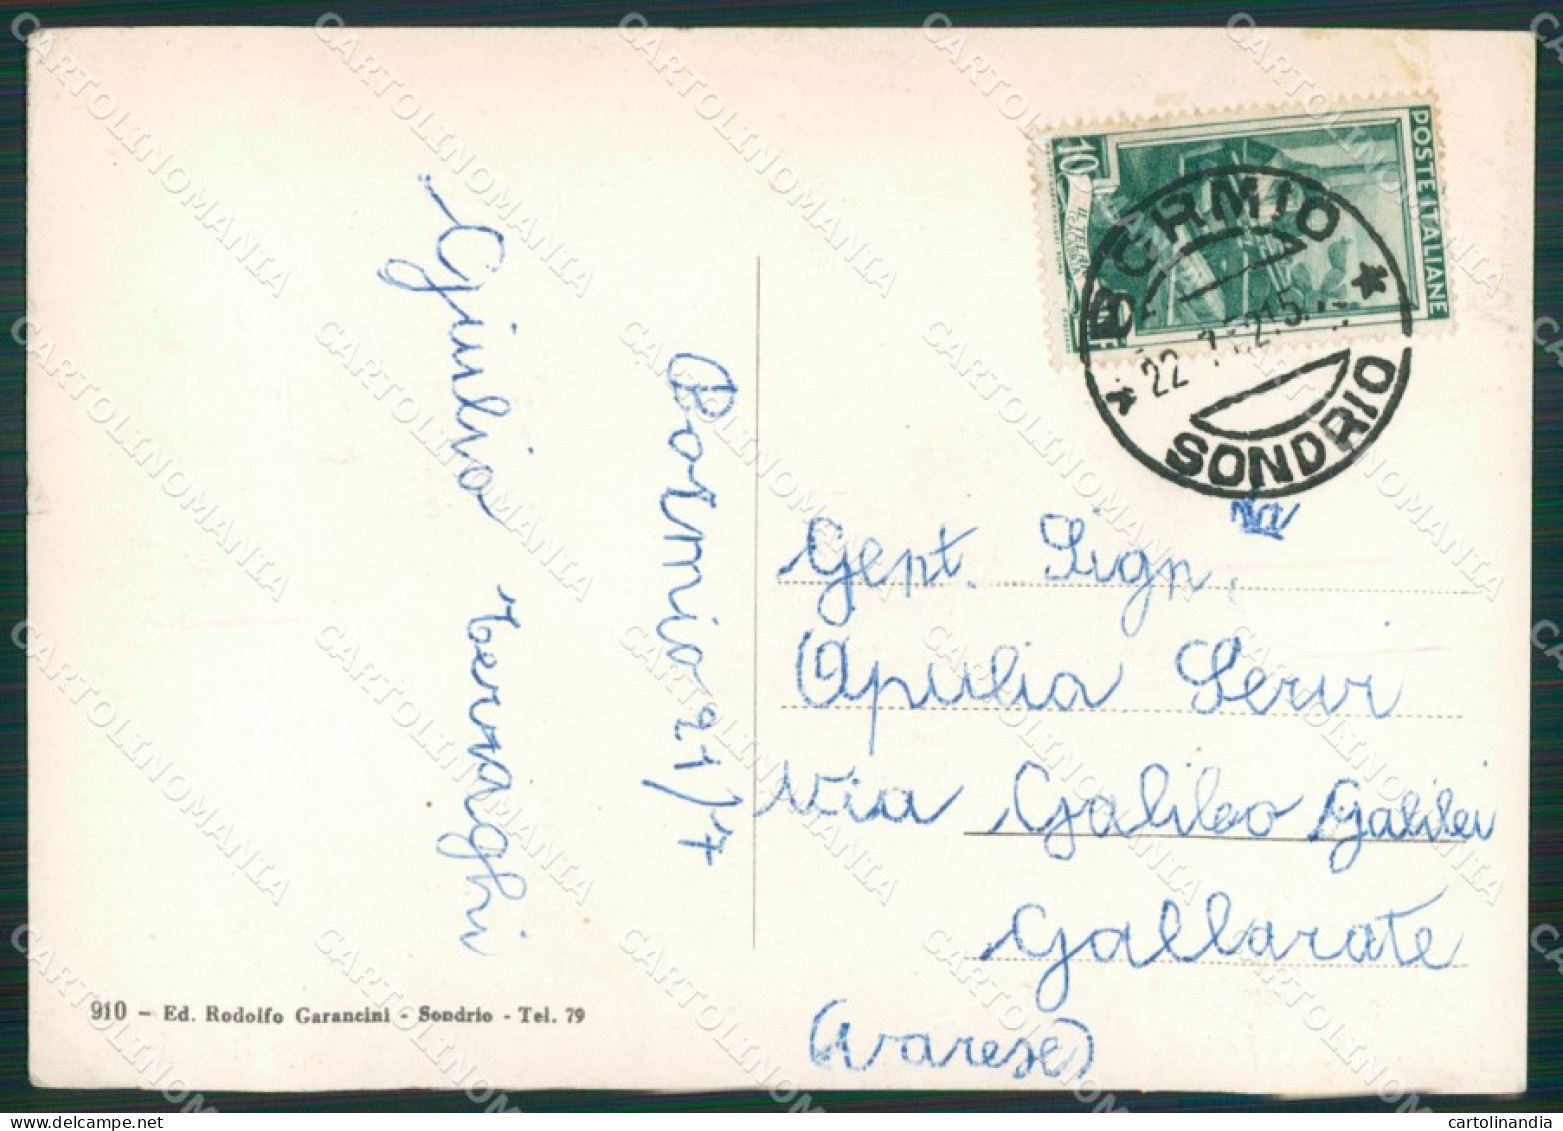 Giulio Bernaghi
Bormio 21/7
POSTE ITALIANE
10
BORMIO
SONDRIO
Gent. Sign.
Apulia Servi
Via Galileo Galilei
Gallarate
(Varese)
910 - Ed. Rodolfo Garancini - Sondrio - Tel. 79
CARTOLINOMANIA
cartolinandia